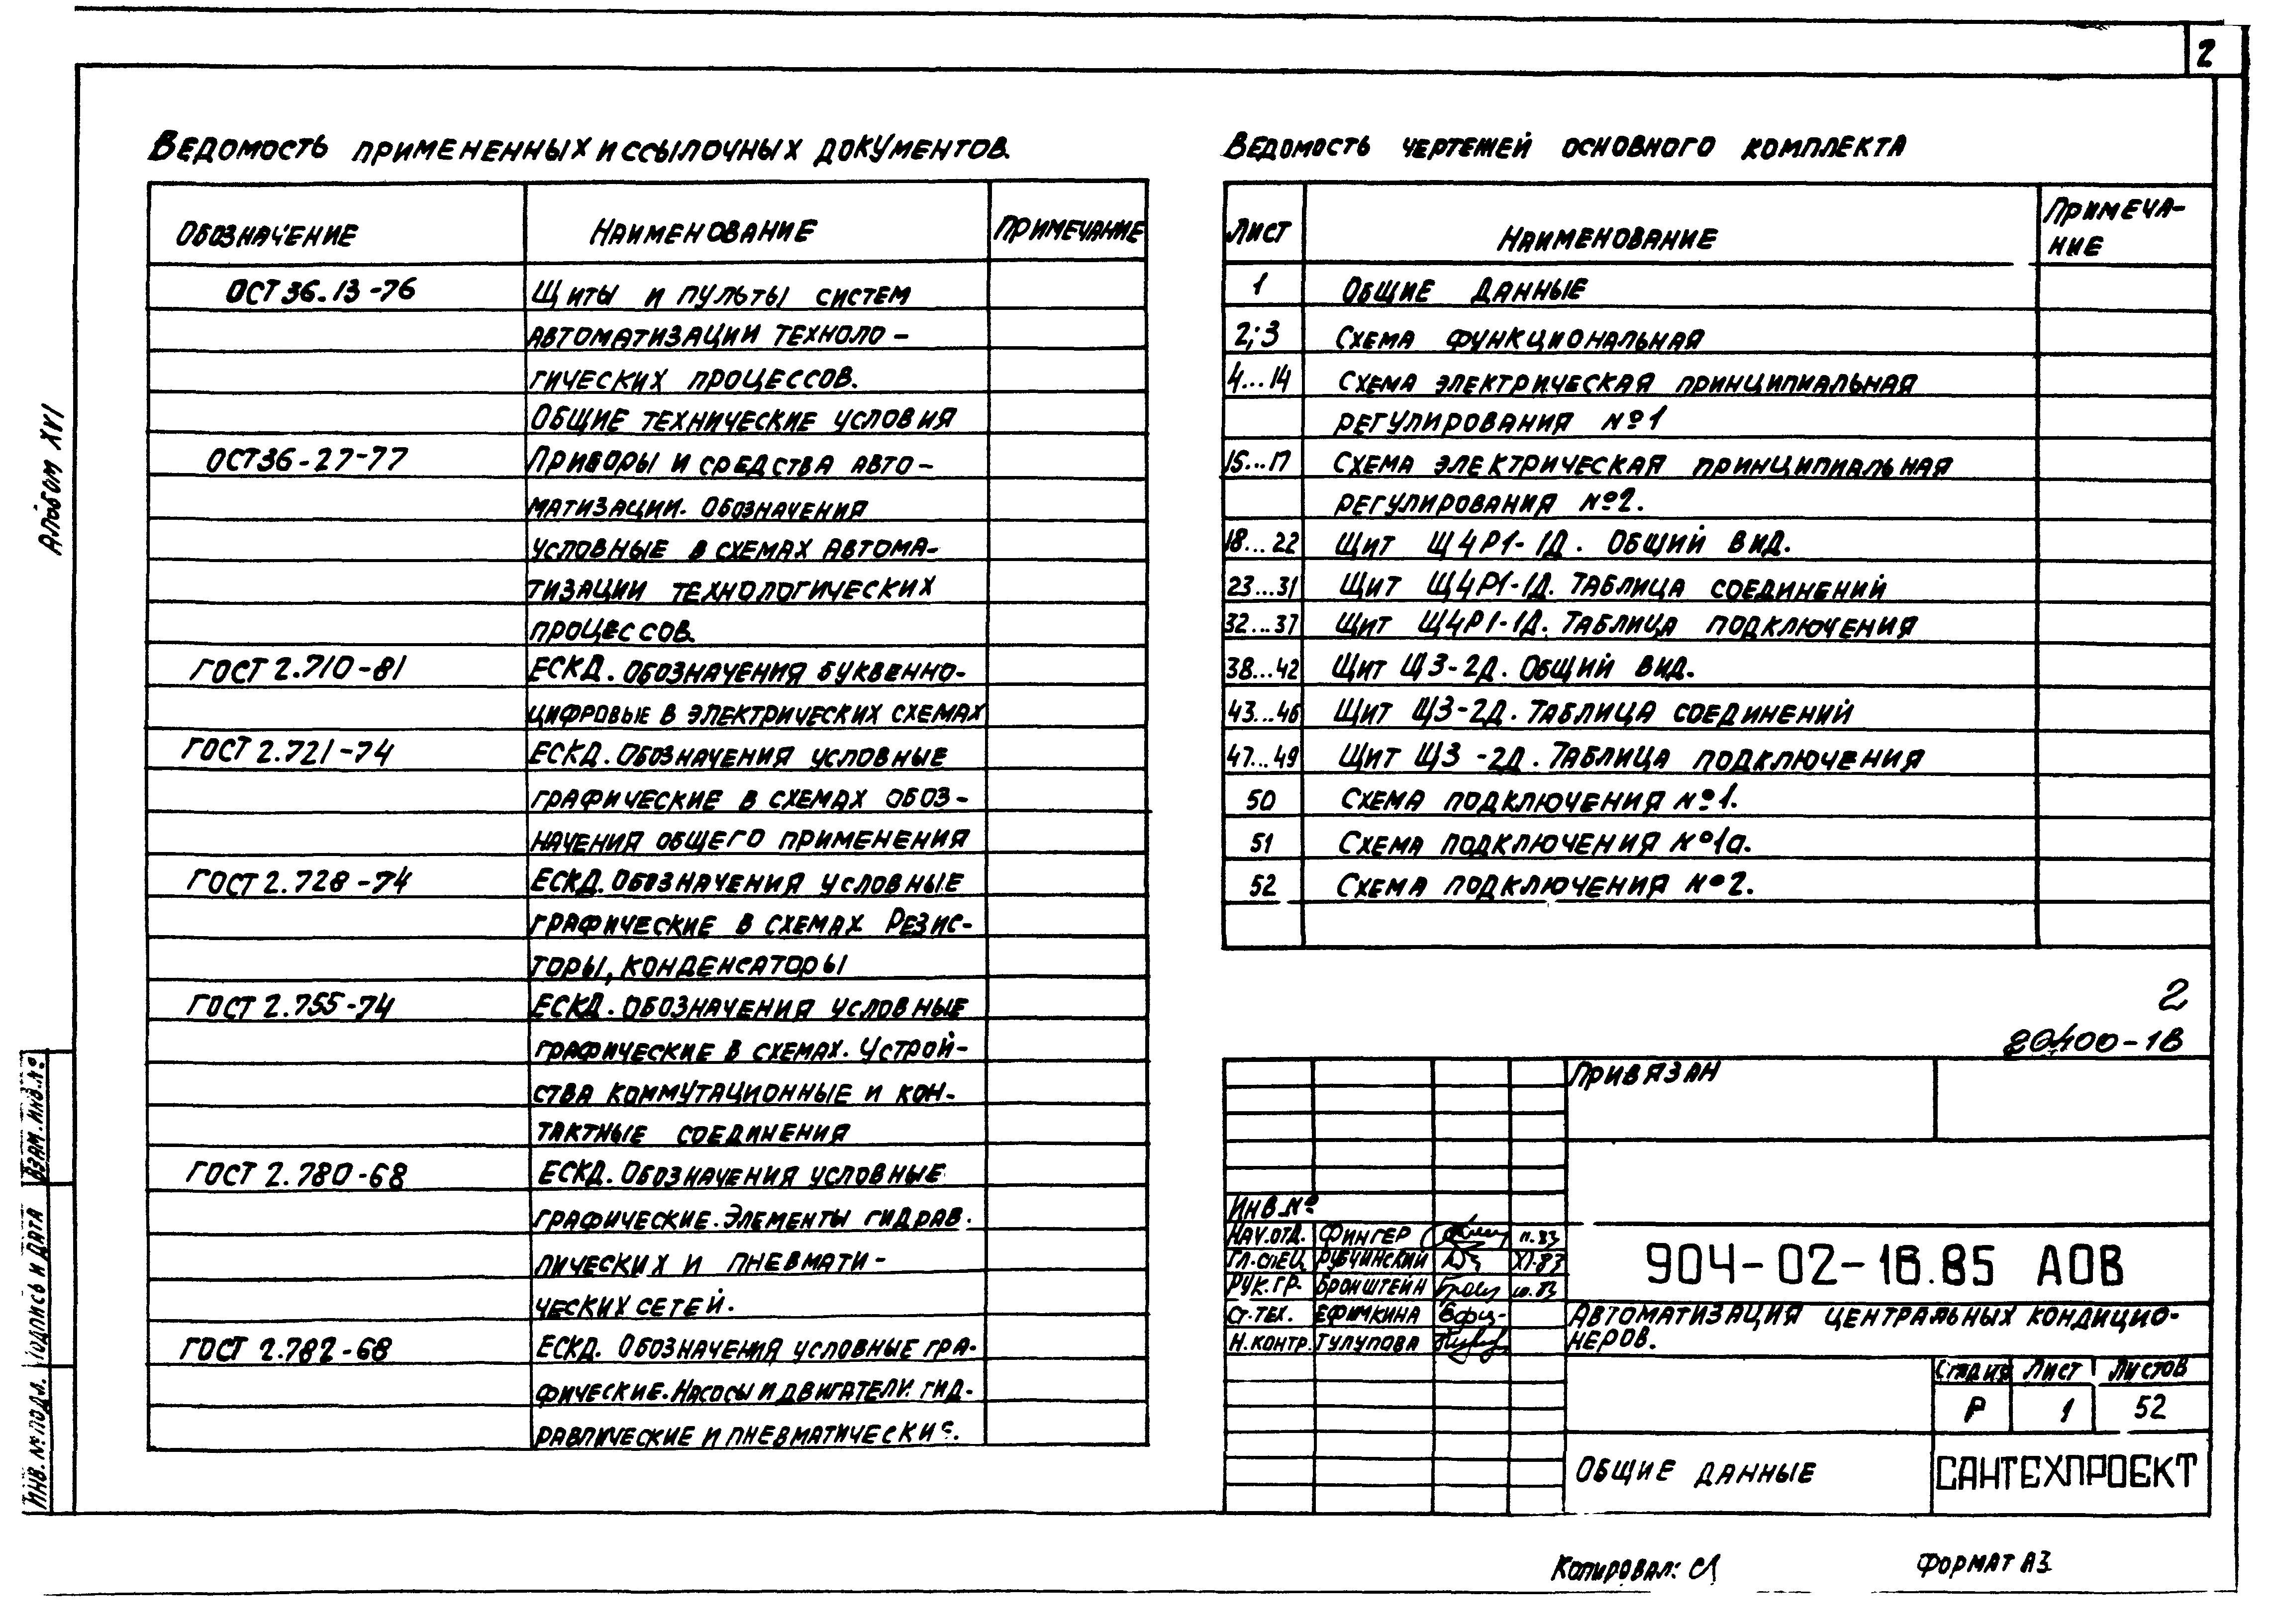 2
Альбом XVI
Ведомость примененных и ссылочных документов.
Обозначение Наименование Примечание
ОСТ 36.13-76 Щиты и пульты систем
автоматизации техноло-
гических процессов.
Общие технические условия
ОСТ36-27-77 Приборы и средства авто-
матизации. Обозначения
условные в схемах автома-
тизации технологических
процессов.
ГОСТ 2.710-81 ЕСКД. Обозначения буквенно-
цифровые в электрических схемах
ГОСТ 2.721-74 ЕСКД. Обозначения условные
графические в схемах обоз-
начения общего применения
ГОСТ 2.728-74 ЕСКД. Обозначения условные
графические в схемах Резис-
торы, конденсаторы
ГОСТ 2.755-74 ЕСКД. Обозначения условные
графические в схемах. Устрой-
ства коммутационные и кон-
тактные соединения
ГОСТ 2.780-68 ЕСКД. Обозначения условные
графические. Элементы гидрав.
лических и пневмати-
ческих сетей.
ГОСТ 2.782-68 ЕСКД. Обозначения условные гра-
фические. Насосы и двигатели гид-
равлические и пневматические.
Ведомость чертежей основного комплекта
Лист Наименование Примеча-
ние
1 Общие данные
2;3 Схема функциональная
4...14 Схема электрическая принципиальная
регулирования №1
15...17 Схема электрическая принципиальная
регулирования №2.
18...22 Щит Щ4Р1-1Д. Общий вид.
23...31 Щит Щ4Р1-1Д. Таблица соединений
32...37 Щит Щ4Р1-1Д. Таблица подключения
38...42 Щит Щ3-2Д. Общий вид.
43...46 Щит Щ3-2Д. Таблица соединений
47...49 Щит Щ3-2Д. Таблица подключения
50 Схема подключения №1.
51 Схема подключения №1а.
52 Схема подключения №2.
2
20400-18
Привязан
Инв.№
Нач.отд. Фингер 11.83
Гл.спец. Рубчинский XI-83
Рук.гр. Бронштейн 10.83
Ст.тех. Ефимкина
Н.контр. Тулупова
904-02-16.85 АОВ
Автоматизация центральных кондицио-
неров.
Стадия Лист Листов
Р 1 52
Общие данные
САНТЕХПРОЕКТ
Взам.инв.№
Подпись и дата
Инв.№ подл.
Копировал:
Формат А3